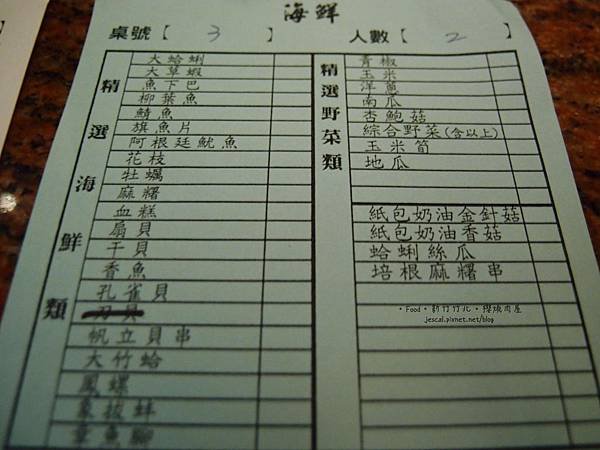 海鮮
桌號【 3 】 人數【 2 】
精選海鮮類
大蛤蜊
大草蝦
魚下巴
柳葉魚
鯖魚
旗魚片
阿根廷魷魚
花枝
牡蠣
麻糬
血糕
扇貝
干貝
香魚
孔雀貝
刀貝
帆立貝串
大竹蛤
鳳螺
象拔蚌
章魚腳
精選野菜類
青椒
玉米
洋蔥
南瓜
杏鮑菇
綜合野菜(含以上)
玉米筍
地瓜
紙包奶油金針菇
紙包奶油香菇
蛤蜊絲瓜
培根麻糬串
•Food•新竹竹北•櫻燒肉屋
jescal.pixnet.net/blog